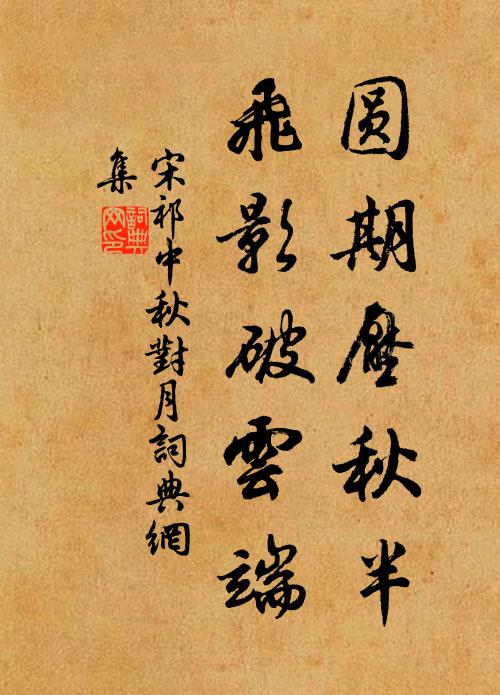 圓期壓秋半
飛影破雲端
宋祁中秋對月詞典網
集
詞典
网印